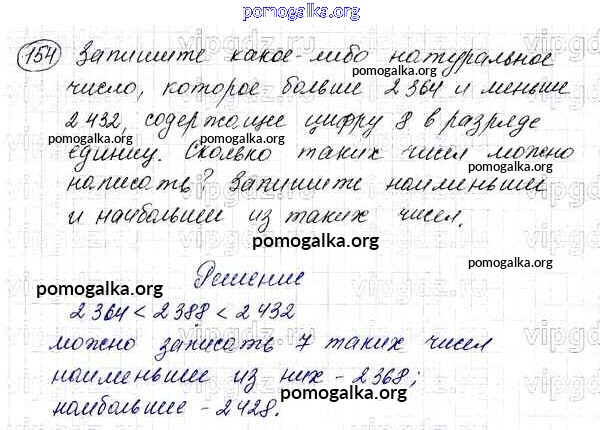 pomogalka.org
154 Запишите какое-либо натуральное
pomogalka.org
число, которое больше 2 364 и меньше
2 432, содержащее цифру 8 в разряде
pomogalka.org
pomogalka.org
единиц. Сколько таких чисел можно
написать? Запишите наименьшее
pomogalka.org
и наибольшее из таких чисел.
pomogalka.org
Решение
pomogalka.org
2 364 < 2 388 < 2 432
можно записать 7 таких чисел
pomogalka.org
наименьшее из них - 2 368;
pomogalka.org
наибольшее - 2 428.